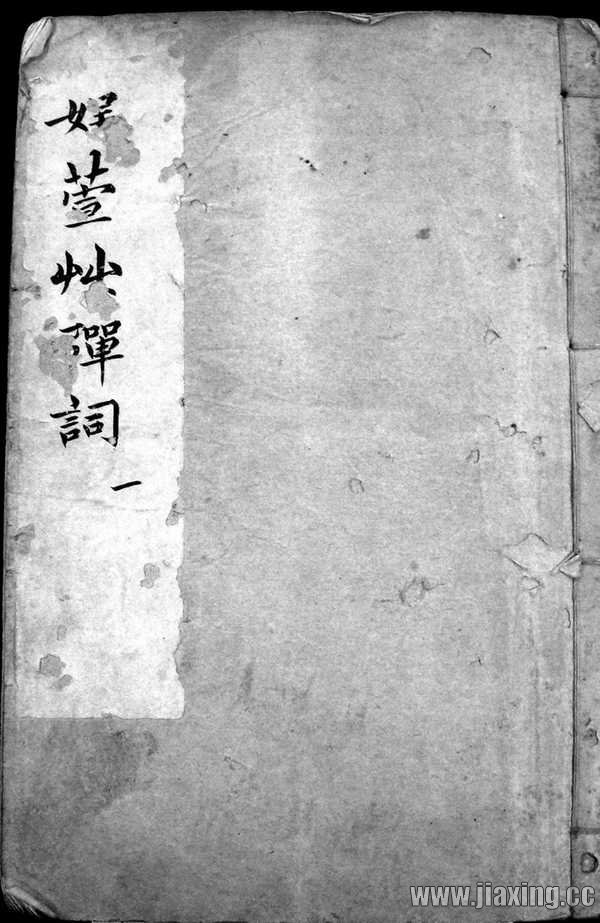 娛萱艸彈詞
一
www.jiaxing.cc